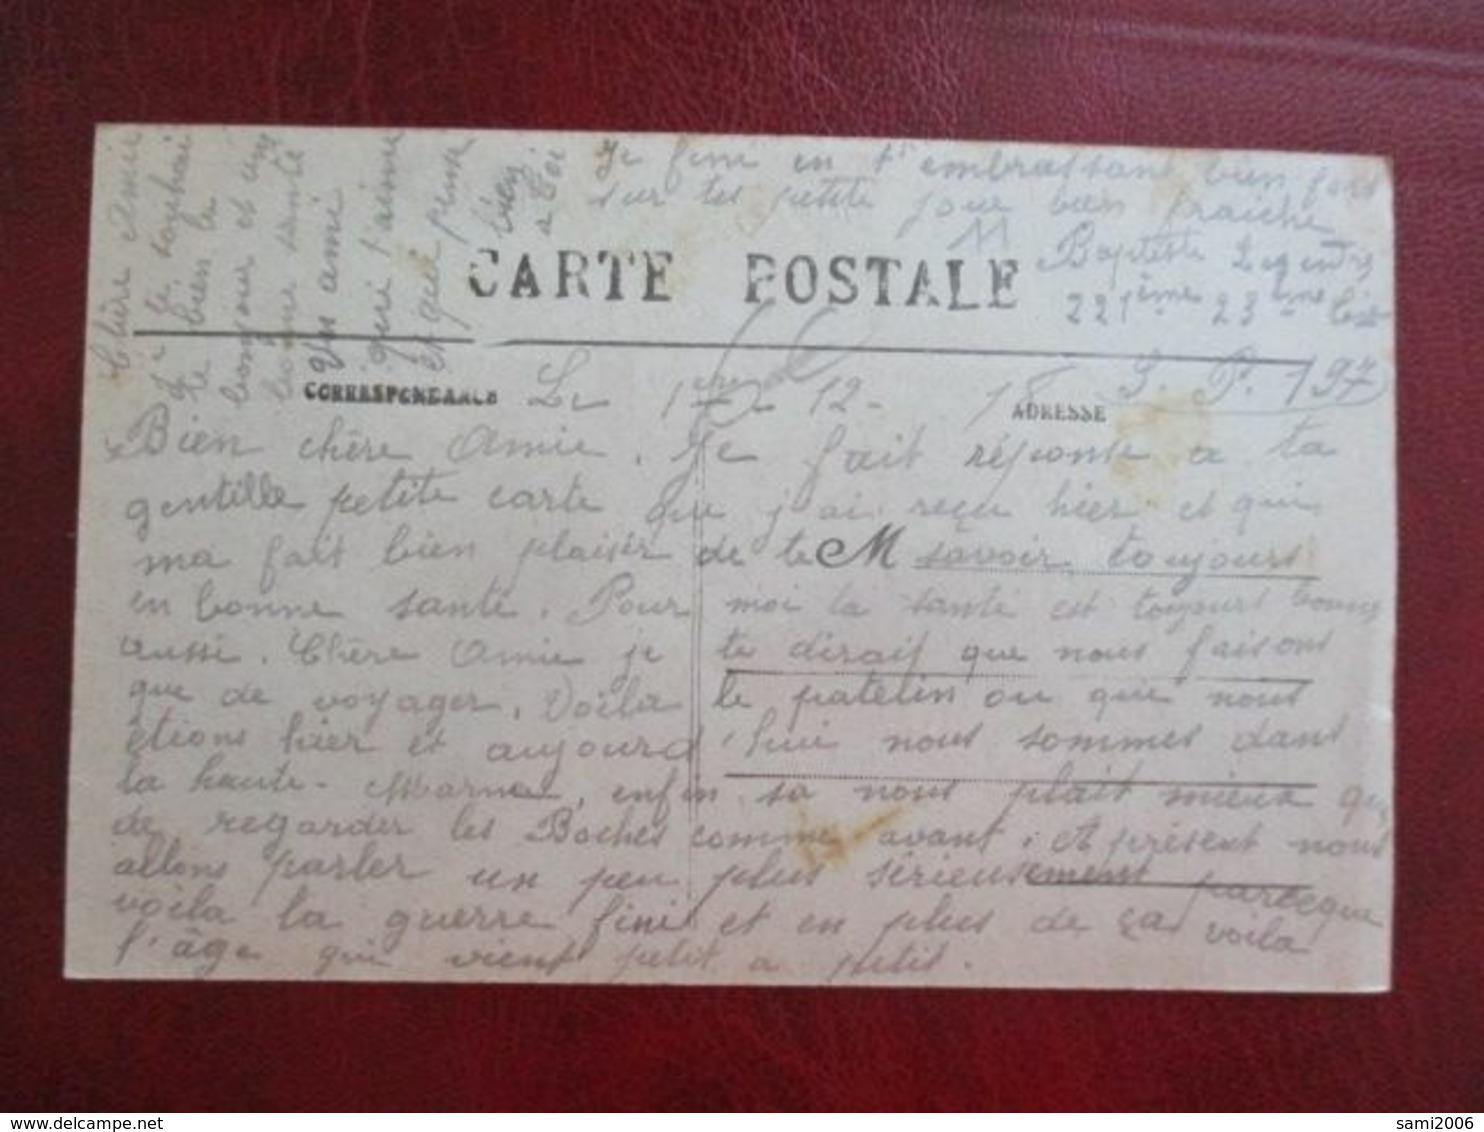 CARTE POSTALE
CORRESPONDANCE
ADRESSE
Le 1er 12 - 18
Bien chère Amie. Je fait réponse a ta
gentille petite carte que j'ai reçu hier et qui
ma fait bien plaisir de te M savoir toujours
en bonne santé. Pour moi la santé est toujours bonne
aussi. Chère Amie je te dirait que nous faisons
que de voyager. Voila le patelin ou que nous
étions hier et aujourd'hui nous sommes dans
la haute-Marne, enfin sa nous plait mieux que
de regarder les Boches comme avant. et présent nous
allons parler un peu plus sérieusement parceque
voila la guerre fini et en plus de ça voila
l'âge qui vient petit a petit.
Chère amie
Je te souhai
te bien le
bonjour et une
bonne santé
Un ami
qui t'aime
et qui pense
bien
a toi
Je fini en t'embrassant bien fort
sur tes petite joue bien fraiche
11
Baptiste
221ème 23ème
S. P. 197
sami2006